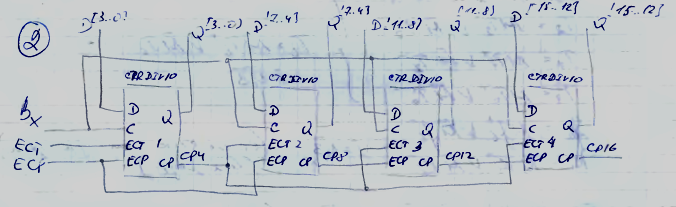 2
D[3..0] Q[3..0] D[7..4] Q[7..4] D[11..8] Q[11..8] D[15..12] Q[15..12]
CTRDIV10 CTRDIV10 CTRDIV10 CTRDIV10
D D D D
Bx C Q C Q C Q C Q
ECT ECT 1 ECT 2 ECT 3 ECT 4
ECP ECP CP CP4 ECP CP CP8 ECP CP CP12 ECP CP CP16